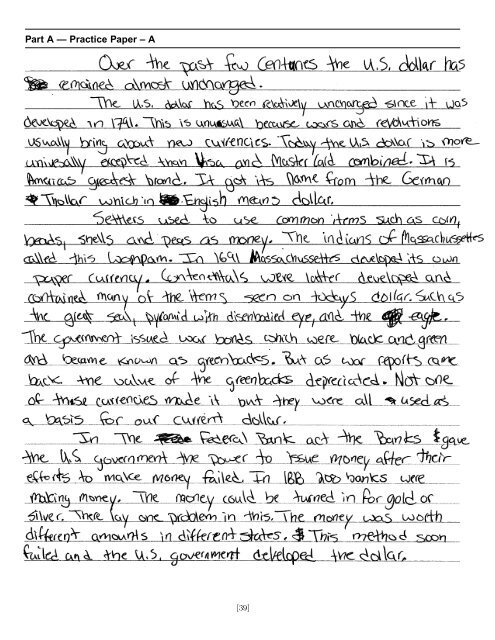 Part A — Practice Paper – A
Over the past few Centuries the U.S. dollar has
remained almost unchanged.
The U.S. dollar has been relatively unchanged since it was
developed in 1791. This is unusual because wars and revolutions
usually bring about new currencies. Today the U.S. dollar is more
universally excepted than Visa and Master Card combined. It is
Americas greatest brand. It got its Name from the German
Thollar which in English means dollar.
Settlers used to use common items such as coin,
beads, shells and pegs as money. The indians of Massachussettes
called this Wompam. In 1691 Massachussettes developed its own
paper currency. Contenentals were latter developed and
contained many of the items seen on todays dollar. Such as
the great seal, pyramid with disembodied eye, and the eagle.
The government issued war bonds which were black and green
and became known as greenbacks. But as war reports came
back the value of the greenbacks depreciated. Not one
of these currencies made it but they were all used as
a basis for our current dollar.
In The Federal Bank act the Banks gave
the U.S government the power to issue money after their
efforts to make money failed. In 200 banks were
making money. The money could be turned in for gold or
silver. There lay one problem in this. The money was worth
different amounts in different states. This method soon
failed and the U.S. government developed the dollar.
[39]